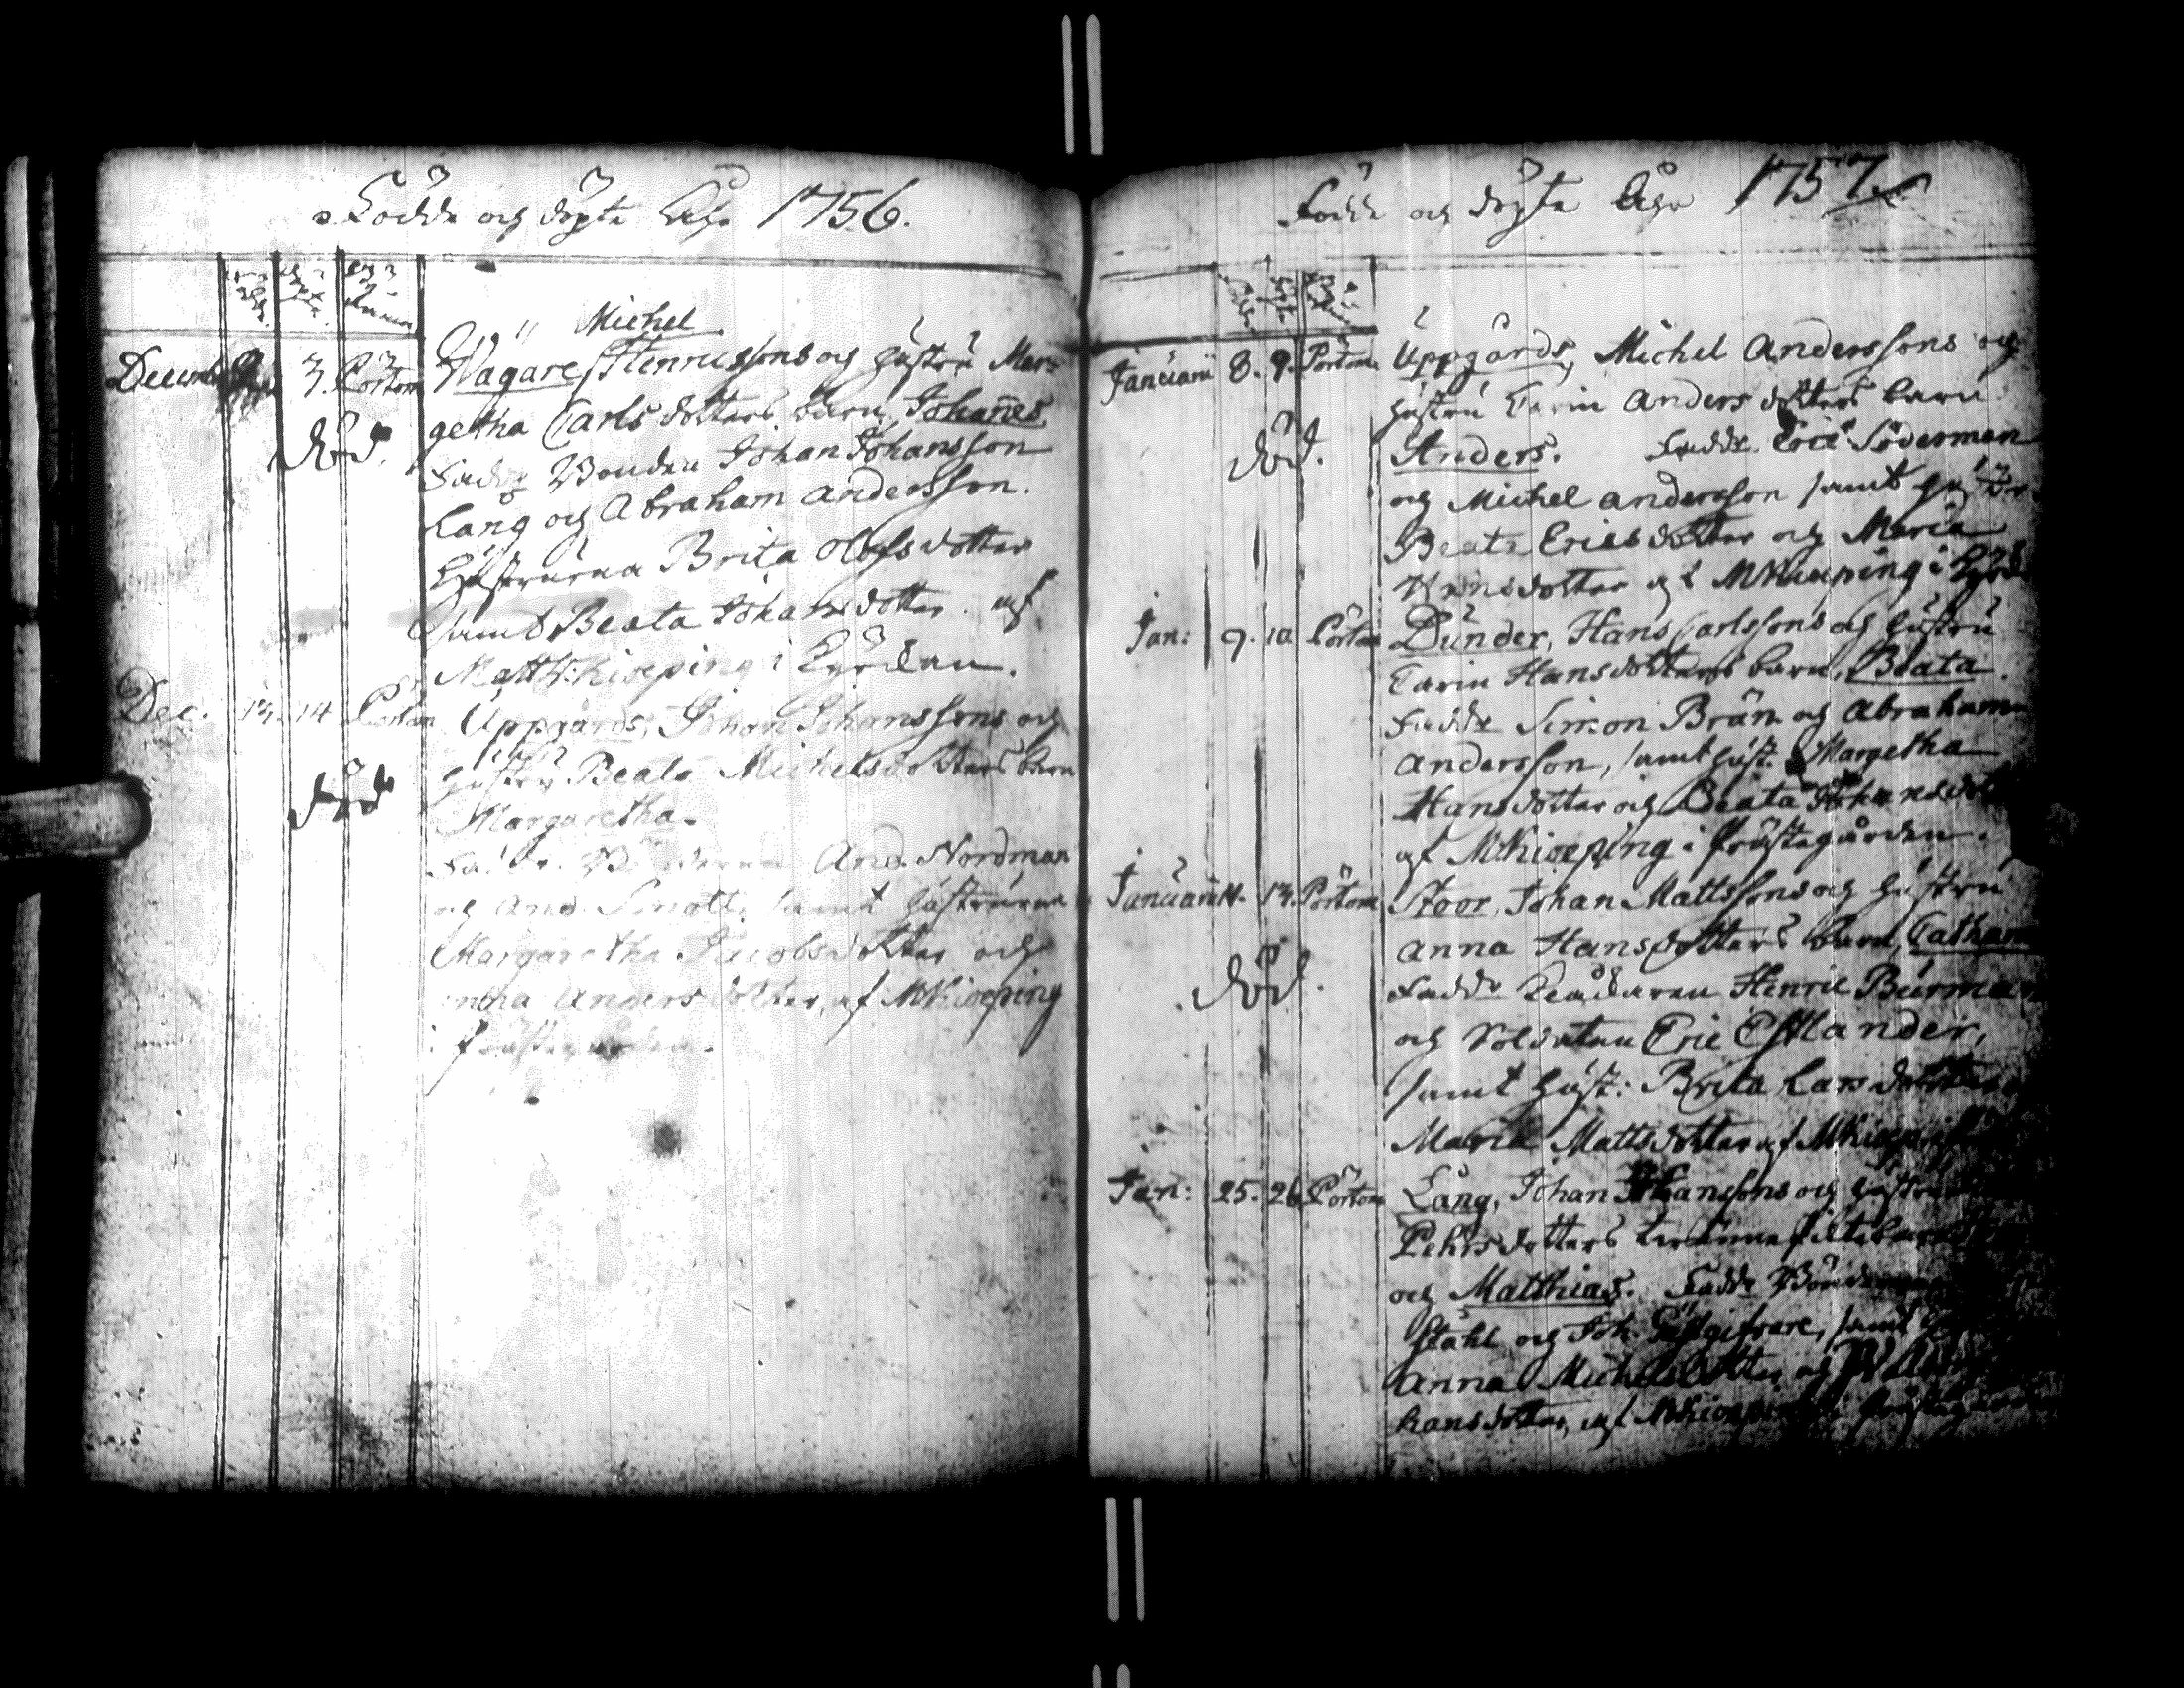 Födde och döpte Åhr 1756.
Michel
Decemb 3. Pörtom Wägare, Henricssons och hustru Mar=
getha Carlsdotters barn, Johañes
död.
Fadd: Bonden Johan Johansson
Lång och Abraham Andersson.
Hustrurna Brita Olofsdotter
samt Beata Johansdotter. af
Matth: Kioeping i Kyrckan.
Dec. 13. 14 Pörtom Uppgårds, Johan Johanssons och
hustru Beata Michelsdotters barn
död
Margaretha.
Fadd. And. Nordman
och And. samt hustrurna
Margaretha Jacobsdotter och
Andersdotter, af MKioeping
i prästegården.
Födde och döpte Åhr 1757.
Januarii 8. 9. Pörtom Uppgårds, Michel Anderssons och
hustru Carin Andersdotters barn
död.
Anders. Fadde. Eric Söderman
och Michel Andersson samt
Beata Ericsdotter och Maria
af MKioeping i
Jan: 9. 10 Pörtom Dunder, Hans Carlssons och hustru
Carin Hansdotters barn, Beata.
Fadde Simon Brän och Abraham
Andersson, samt hust. Margetha
Hansdotter och Beata
af MKioeping i prästegården.
Januarii 11. 13. Pörtom Stoor, Johan Mattssons och hustru
Anna Hansdotters barn, Cathar
död.
Fadde Henric Burman
och Soldaten Eric Estlander,
samt hust: Brita Larsdotter
Maria Mattsdotter af MKioep
Jan: 25. 26 Pörtom Lång, Johan Johanssons och hustru
Pehrsdotters
och Matthias. Fadde
Ståhl och Joh. Gästgifvare, samt
Anna Michelsdotter och
hansdotter, af MKioeping